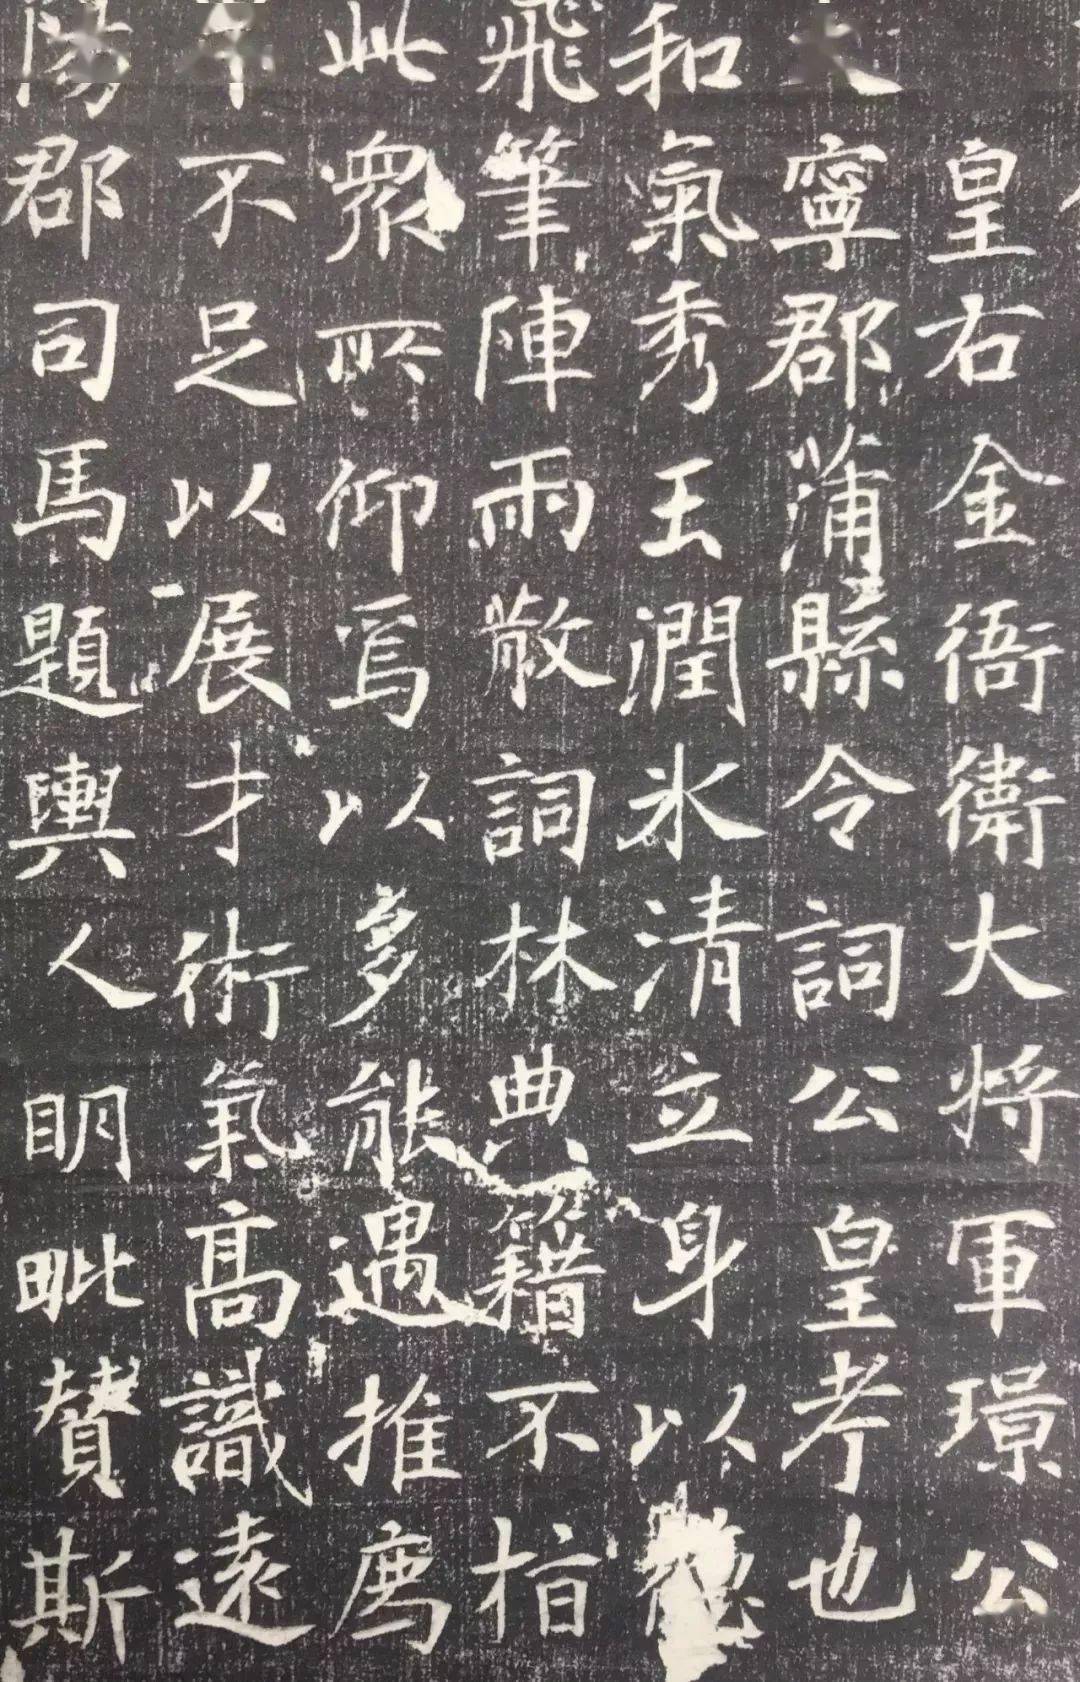 皇右金衙衛大將軍璟公
寧郡蒲縣令詞公皇考也
和氣秀玉潤氷清立身以德
飛筆陣雨散詞林典籍不指
此衆所仰焉以多能遇推爲
不足以展才術氣高識遠
陽郡司馬題輿人明毗贊斯